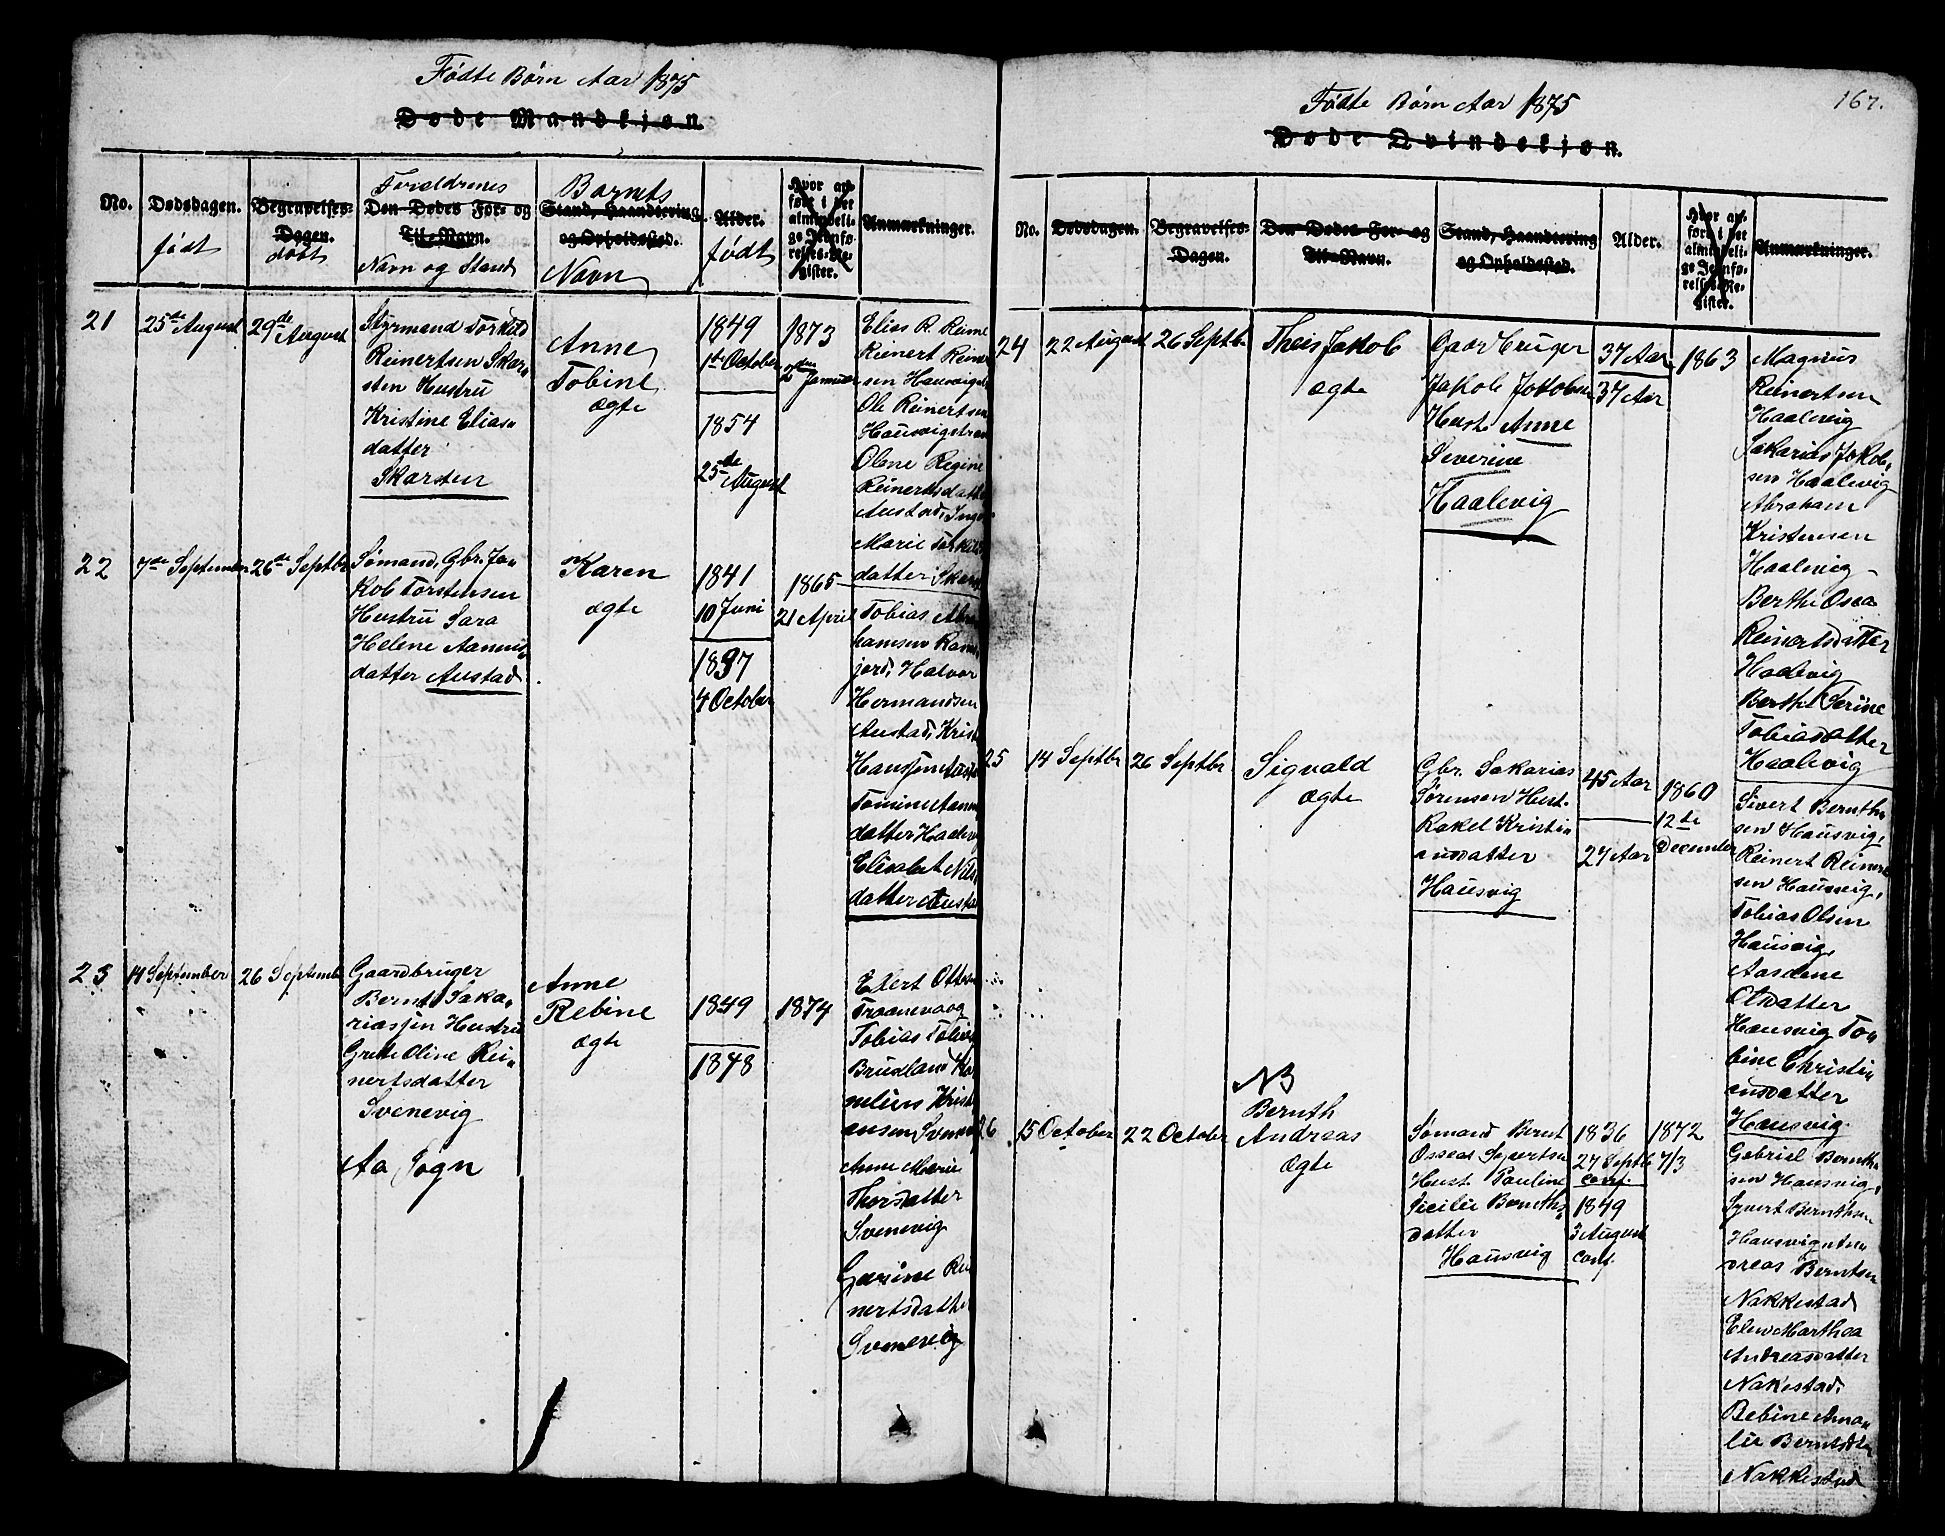 Fødte Børn Aar 1875
Døde Mandkjøn.
No.
Dødsdagen.
født
Begravelses-
Dagen.
døbt
Forældrenes
Den Dødes For- og
Til-Navn.
Navn og Stand
Barnets
Stand, Haandtering
og Opholdssted.
Navn
Alder.
født
Hvor an-
ført i det
almindeli-
ge Jevnfø-
relses-Re-
gister.
Anmærkninger.
21
25de August
29de August
Styrmand Torkild
Reinertsen Skar-
sten Hustru
Kristine Elias-
datter
Skarsten
Anne
Tobine
ægte
1849
1ste October
1854
25de August
1873
2den Januar
Elias R. Reine
Reinert Reiner
sen Hausvig
Ole Reinertsen
Hausvigstran
Olene Regine
Reinertsdatter
Austad, Inge
Marie Torkilds
datter Skarst
22
7de September
26de Septbr
Sømand, Gbr. Ja-
kob Torstensen
Hustru Sara
Helene Aanens-
datter Austad
Karen
ægte
1841
10 Juni
1837
4 October
1865
21 April
Tobias Abra
hamsen Ram
jord, Halvor
Hermandsen
Austad, Krist
Hansjen Austad
Tomine Aanen
datter Haalev
Elisabet Nils
datter Austad
23
14 September
26 Septemb
Gaardbruger
Bernt Saka-
riasjen Hustru
Grete Oline Rei-
nertsdatter
Svenevig
Aa Sogn
Anne
Rebine
ægte
1849
1848
1874
Edert Ottesen
Traanevaag
Tobias Tobias
Brueland Kor
nelius Kristi
ansen Svenevig
Anne Marie
Thorsdatter
Svenevig
Garine Rei
nertsdatter
Svenevig
Fødte Børn Aar 1875
167.
Døde Qvindekjøn.
No.
Dødsdagen.
Begravelses-
Dagen.
Den Dødes For- og
Til-Navn.
Stand, Haandtering
og Opholdssted.
Alder.
Hvor an-
ført i det
almindeli-
ge Jevnfø-
relses-Re-
gister.
Anmærkninger.
24
22 August
26 Septbr
Theis Jakob
ægte
Gaarbruger
Jakob Jakobsen
Hust. Anne
Severine
Haalevig
37 Aar
37 Aar
1863
Magnus
Reinertsen
Haalevig
Sakarias Jakob-
sen Haalevig
Abraham
Kristensen
Haalevig
Berthe Osea
Reinertsdatter
Haalevig
Berthe Serine
Tobiasdatter
Haalevig
25
14 Septbr
26 Septbr
Sigvald
ægte
Gbr. Sakarias
Sørensen Hust.
Rakel Kristi-
ansdatter
Hausvig
45 Aar
27 Aar
1860
12te
December
Sivert Bernth-
sen Hausvig,
Reinert Reinert
sen Hausvig,
Tobias Olsen
Hausvig,
Aasdene
Otsdatter
Hausvig To-
bine Christi-
ansdatter
Hausvig.
26
15 October
22 October
NB
Bernth
Andreas
ægte
Sømand Bernt
Osseas Syvertsen
Hust Pauline
Sicilie Bernths-
datter
Hausvig
1836
27 Septb
conf.
1849
3 August
conf.
1872
7/3
Gabriel Bernth-
sen Hausvig,
Syvert Bernthsen
Hausvig, An-
dreas Berntsen
Nakkestad
Elen Marthea
Andreasdatter
Nakestad,
Bebine Ama-
lie Berntsdtr
Nakkestad